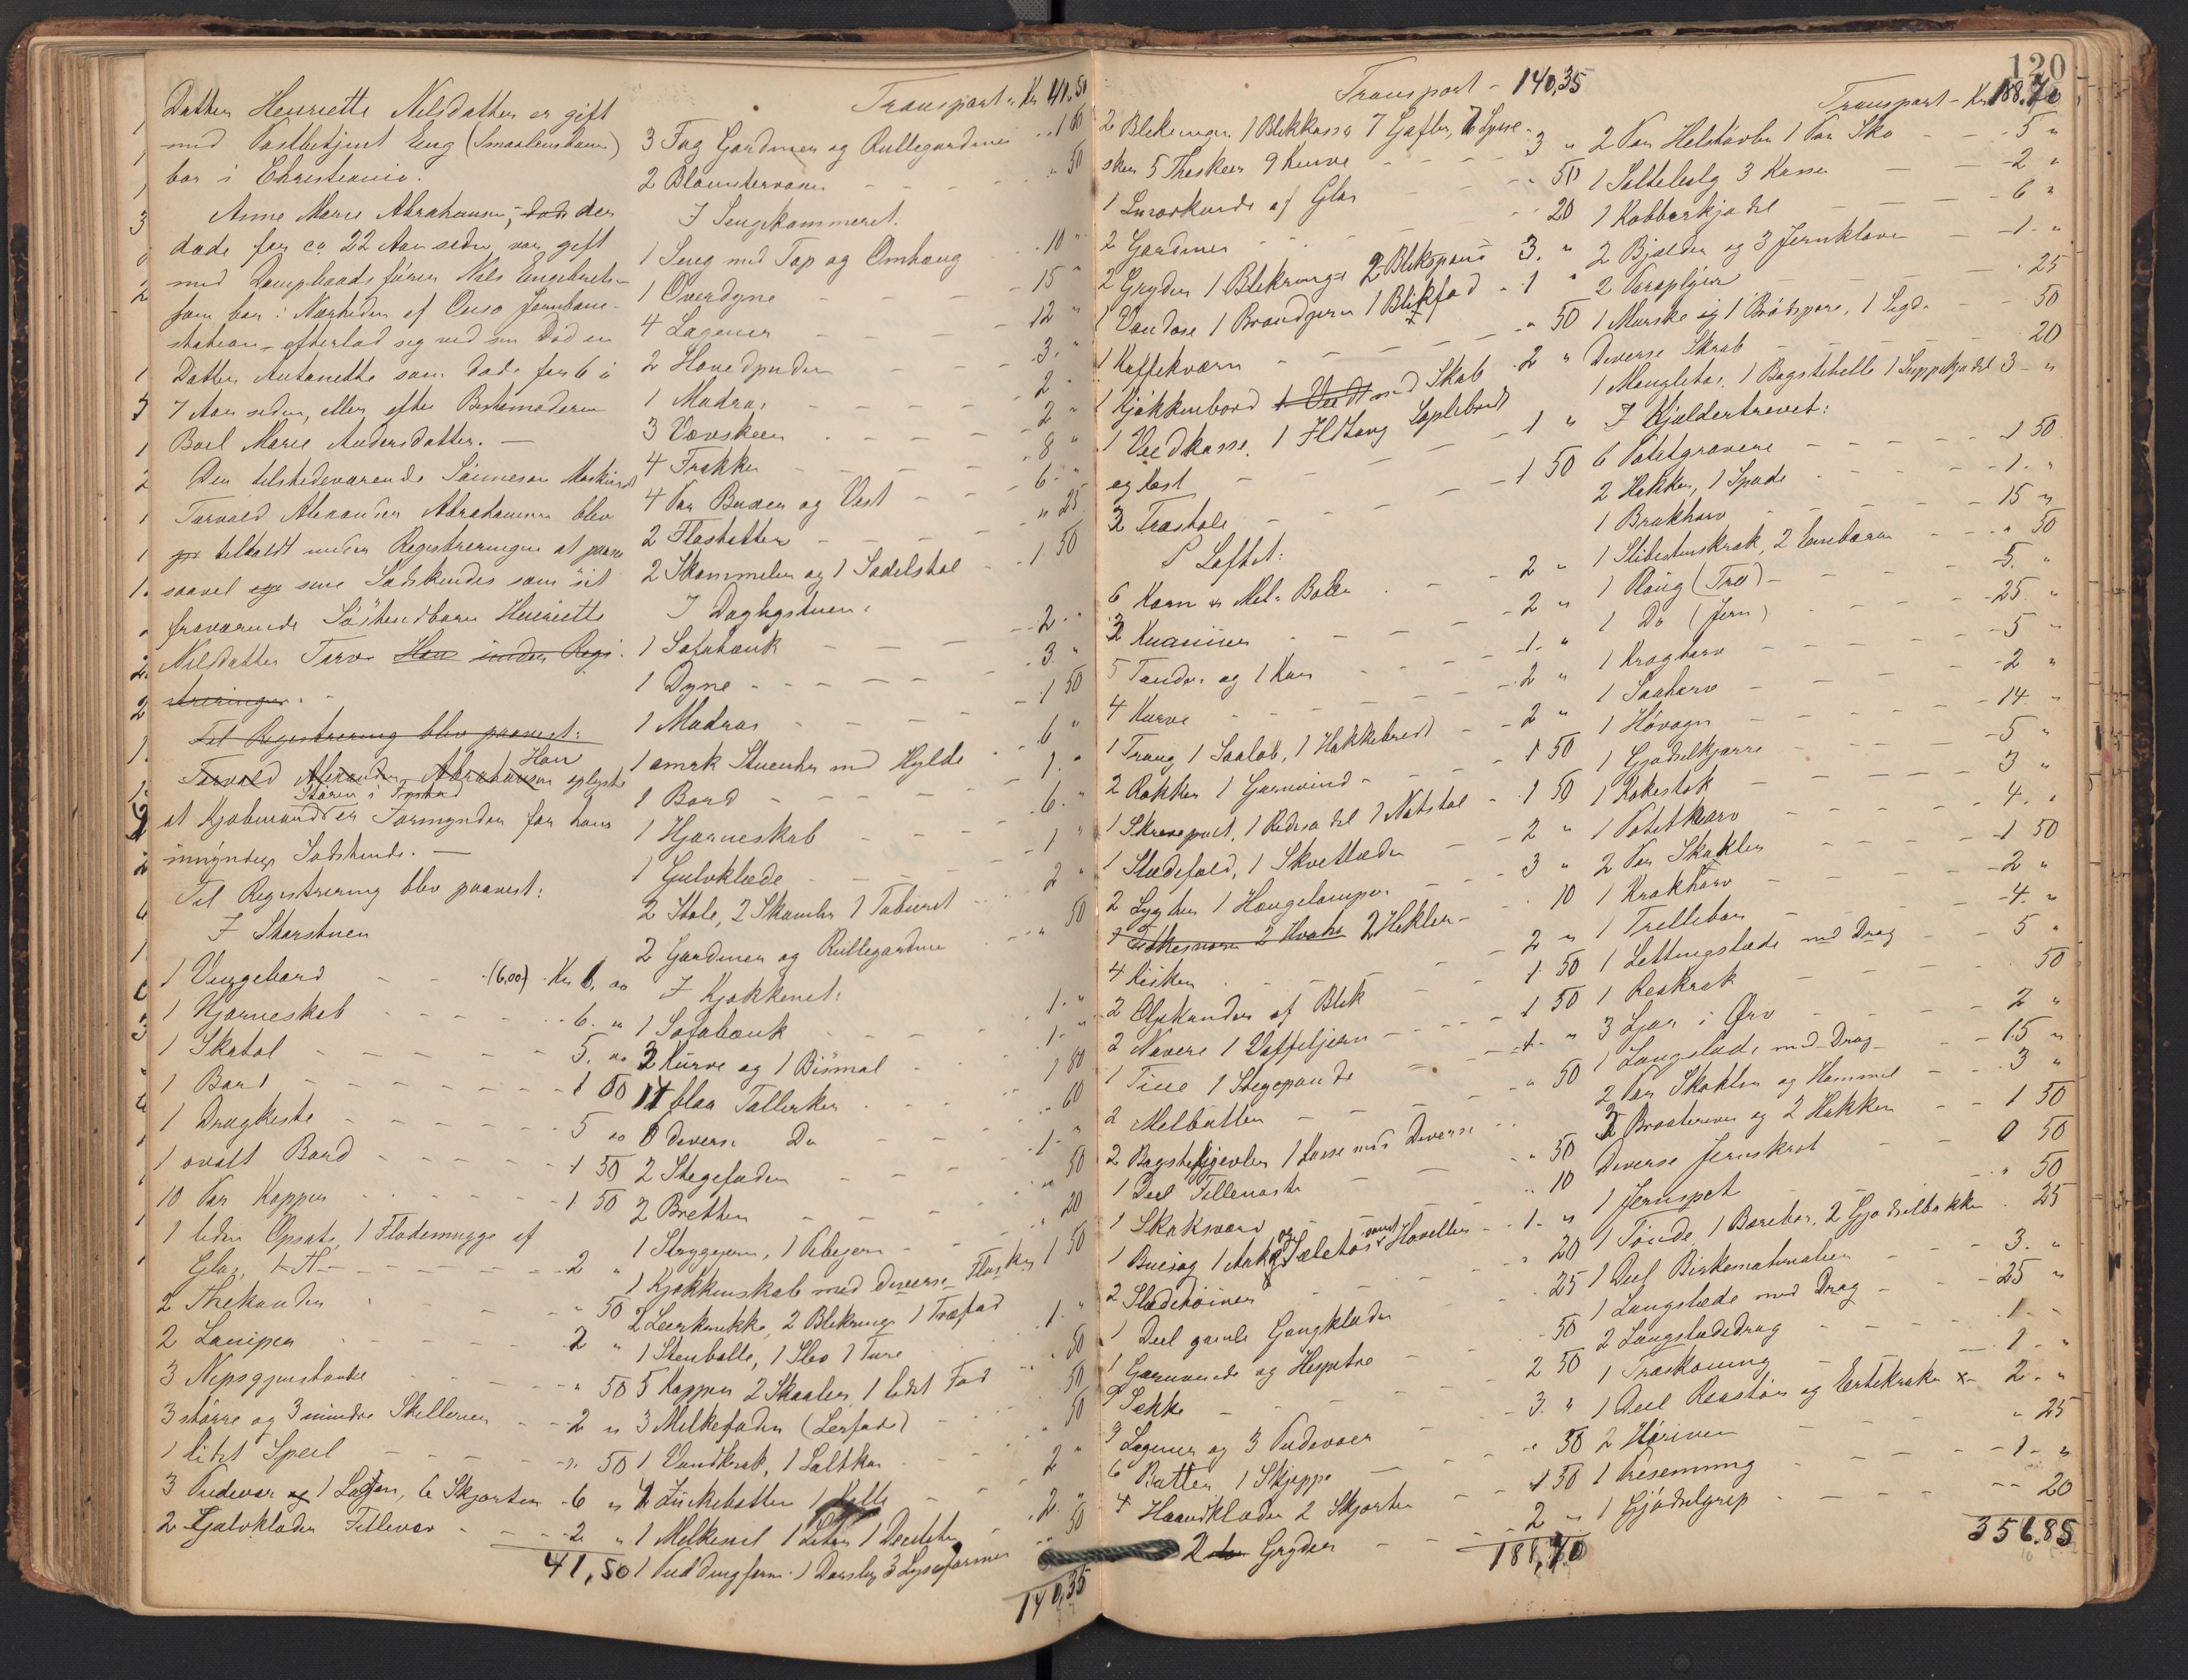 Datter Henriette Nilsdatter er gift
med Postbetjent Eng (Smaalensbanen)
bor i Christiania.
Anne Marie Abrahamsen, døde der
døde for ca 22 Aar siden, var gift
med Dampbaadsfører Nils Engebretsen
som bor i Nærheden af Onsø Jernbane-
station – efterlod sig ved sin Død en
Datter Antonette som døde for 6 à
7 Aar siden, eller efter Bestemoderen
Boel Marie Andersdatter. –
Den tilstedeværende Sønnesøn Maskinist
Torvald Alexander Abrahamsen blev
tilholdt under Registreringen at passe
saavel sine Sødskendes som sit
fraværende Søskendbarn Henriette
Nilsdatter Tarv. Han under Regi-
streringen.
Til Registrering blev paavist:
Han
Torvald Alexander Abrahamsen oplyste
Støren i
at Kjøbmand er Formynder for hans
umyndige Sødskende. –
Til Registrering blev paavist:
I Storstuen
1 Vengebord - - (6,00) Kr 6. 00
1 Hjørneskab - - - - 6. "
1 Skatol - - - - 5. 00
1 Bord - - - - 1 00
1 Dragkiste - - - - 5 00
1 ovalt Bord - - - - 1 50
10 Par Kopper - - - - 1 50
1 liden Opsats, 1 Flødemugge af
Glas - - - - 2 "
2 Thekander - - " 50
2 Lamper - - 2 "
3 Nipsgjenstande - - " 50
3 større og 3 mindre Skillerier - - 2 "
1 lidet Speil - - " 50
3 Pudevar og 1 Lagen, 6 Skjorter - 6 "
2 Gulvklæder Fillevæv - - 2 "
41,50
Transport " Kr 41.50
3 Fag Gardiner og Rullegardiner - - 1 00
2 Blomstervaser - - - " 50
I Sengekammeret:
1 Seng med Tøp og Omhæng - - 10 "
1 Overdyne - - - - 15 "
4 Lagener - - - - 12 "
2 Hovedpuder - - - - 3. "
1 Madras - - - - 2 "
3 Vævskeer - - - - 2 "
4 Frakker - - - - 8 "
4 Par Buxer og Vest - - - 6 "
2 Floshatter - - - - " 25
2 Skammeler og 1 Sadelstol - - 1 50
I Dagligstuen:
1 Sofabænk - - - - 2. "
1 Dyne - - - - 3. "
1 Madras - - - - 1 50
1 amrk Stueuhr med Hylde - - 6 "
1 Bord - - - - 1. "
1 Hjørneskab - - - - 6. "
1 Gulvklæde - - - - 1 "
2 Stole, 2 Skamler 1 Taburet - - 2 "
2 Gardiner og Rullegardiner - - " 50
I Kjøkkenet:
1 Sofabænk - - - - 1. "
3 Kurve og 1 Bismal - - 1. "
14 blaa Tallerker - - - 1 80
6 diverse Do - - - " 60
2 Stegefader - - - 1 "
2 Bretter - - - - " 50
1 Strygejern, 1 Pibejern - - " 20
1 Kjøkkenskab med diverse Flasker 1 50
2 Leerkrukke, 2 Blikmugge 1 Træfad 1. "
1 Stenbolle, 1 Slev 1 Ture - - " 50
5 Kopper 2 Skaaler, 1 lidet Fad - 50
3 Melkefader (Lerfade) - - 50
1 Vandkrak, 1 Saltkar - - 2 "
2 Zinkebøtter 1 - - 2. "
1 Melkesiel 1 1 - - 50
1 Puddingform 1 Dørslag 3 Lyseformer
140,35
Transport - 140,35
2 Blikmuger 1 Blikkasse 7 Gafler, 7 Lyse-
sker 5 Theskeer 9 Knive - - - 3 "
1 Smørkurde af Glas - - - " 50
2 Gardiner - - - - " 20
2 Gryder 1 Blikmugge 2 Blikspand 3. "
1 Vandøse 1 Brandjern 1 Blikfad - 1 "
1 Kaffekværn - - - - " 50
1 Kjøkkenbord med Skab - 2 "
1 Vedkasse, 1 Ildtang
og kost - - - 1 "
3 Træstole - - - - 1 50
P Loftet:
6 Korn & Mel-Baller - - 2 "
3 Knasiner - - - - 2 "
5 Tønder og 1 Kar - - - 1. "
4 Kurve - - - - 2 "
1 Traug 1 Saalöb, 1 Hakkebredt - 2 "
2 Rokker 1 Garnvind - - - 1 50
1 Skrivepult, 1 1 Natstol - 1 50
1 Slædefæld, 1 Skvetlæder - - 2 "
2 Lygter 1 Hængelampe - - 3 "
2 Hekler - - 10
4 Kister - - - - 2 "
2 Oljekander af Blik - - 1 50
2 Navere 1 Vaffeljern - - - 1 50
1 Tine 1 Stegepande - - - 1 "
2 Melbøtter - - - " 50
2 Bagstefjevler 1 Kasse med Diverse -
1 Deel Filleraster - - " 50
1 Skaksvard - - - " 10
1 Buesag 1 og samt Høvelben - 1. "
2 Slædebönner - - - " 20
1 Deel gamle Gangklæder - - 25
1 Garnvinde og Hesptræ - - 50
9 Sække - - - - 2 50
3 Lagener og 3 Pudevaer - - 3. "
6 Bøtter 1 Skjeppe - - " 30
4 Haandklæder 2 Skjorter - - 1 50
2 Gryder - - - 2 "
188,70
120
Transport - Kr 188.70
2 Par Halstøvler 1 Par Sko - - 5 "
1 Saltebalg 3 Kasser - - 2 "
1 Kobberkjedel - - 6 "
2 Bjælder og 3 Jernklaver - - 1. "
2 - - 25
1 og 1 Brödspore, 1 Sigd - - 50
Deverse Skrab - - 20
1 1 Bagstehelle 1 Suppekjedel 3 "
I Kjældertrevet:
6 Potetgravere - - - 1 50
2 Hakker, 1 Spade - - 1. "
1 Brakharv - - - 15 "
1 Slibestenskrak, 2 - - " 50
1 Plaug (Træ) - - - 5. "
1 Do (Jern) - - - 25. "
1 Krogharv - - - 5 "
1 Saaharv - - - 2 "
1 Høvogn - - - 14. "
1 Gjødselkjærre - - - 5 "
1 Kokestok - - - 3 "
1 Potetkarv - - - 4. "
2 Par Skokler - - - 1 50
1 Krokharv - - - 2 "
1 Trillebør - - - 4. "
1 Lettingslæde med Drag - - 5 "
1 Reakrak - - - 50
3 Ljaer i Orv - - - 2 "
1 Langslæde med Drag - - 15 "
2 Par Skokler og Hammel - - 3 "
3 og 2 Hakker - - 1 50
Diverse Jernskrot - - 0 50
1 Jernspet - - " 50
1 Tønde, 1 Børebør, 2 Gjødselbokker 25
1 Deel Birkematerialier - - 3. "
1 Langslæde med Drag - - 25 "
2 Langslædedrag - - 1. "
1 - - 1 "
1 Deel Reastör og Ertekraker - 2. "
2 Høriver - - " 25
1 Presenning - - 1. "
1 Gjødselgrep - - 20
356.85